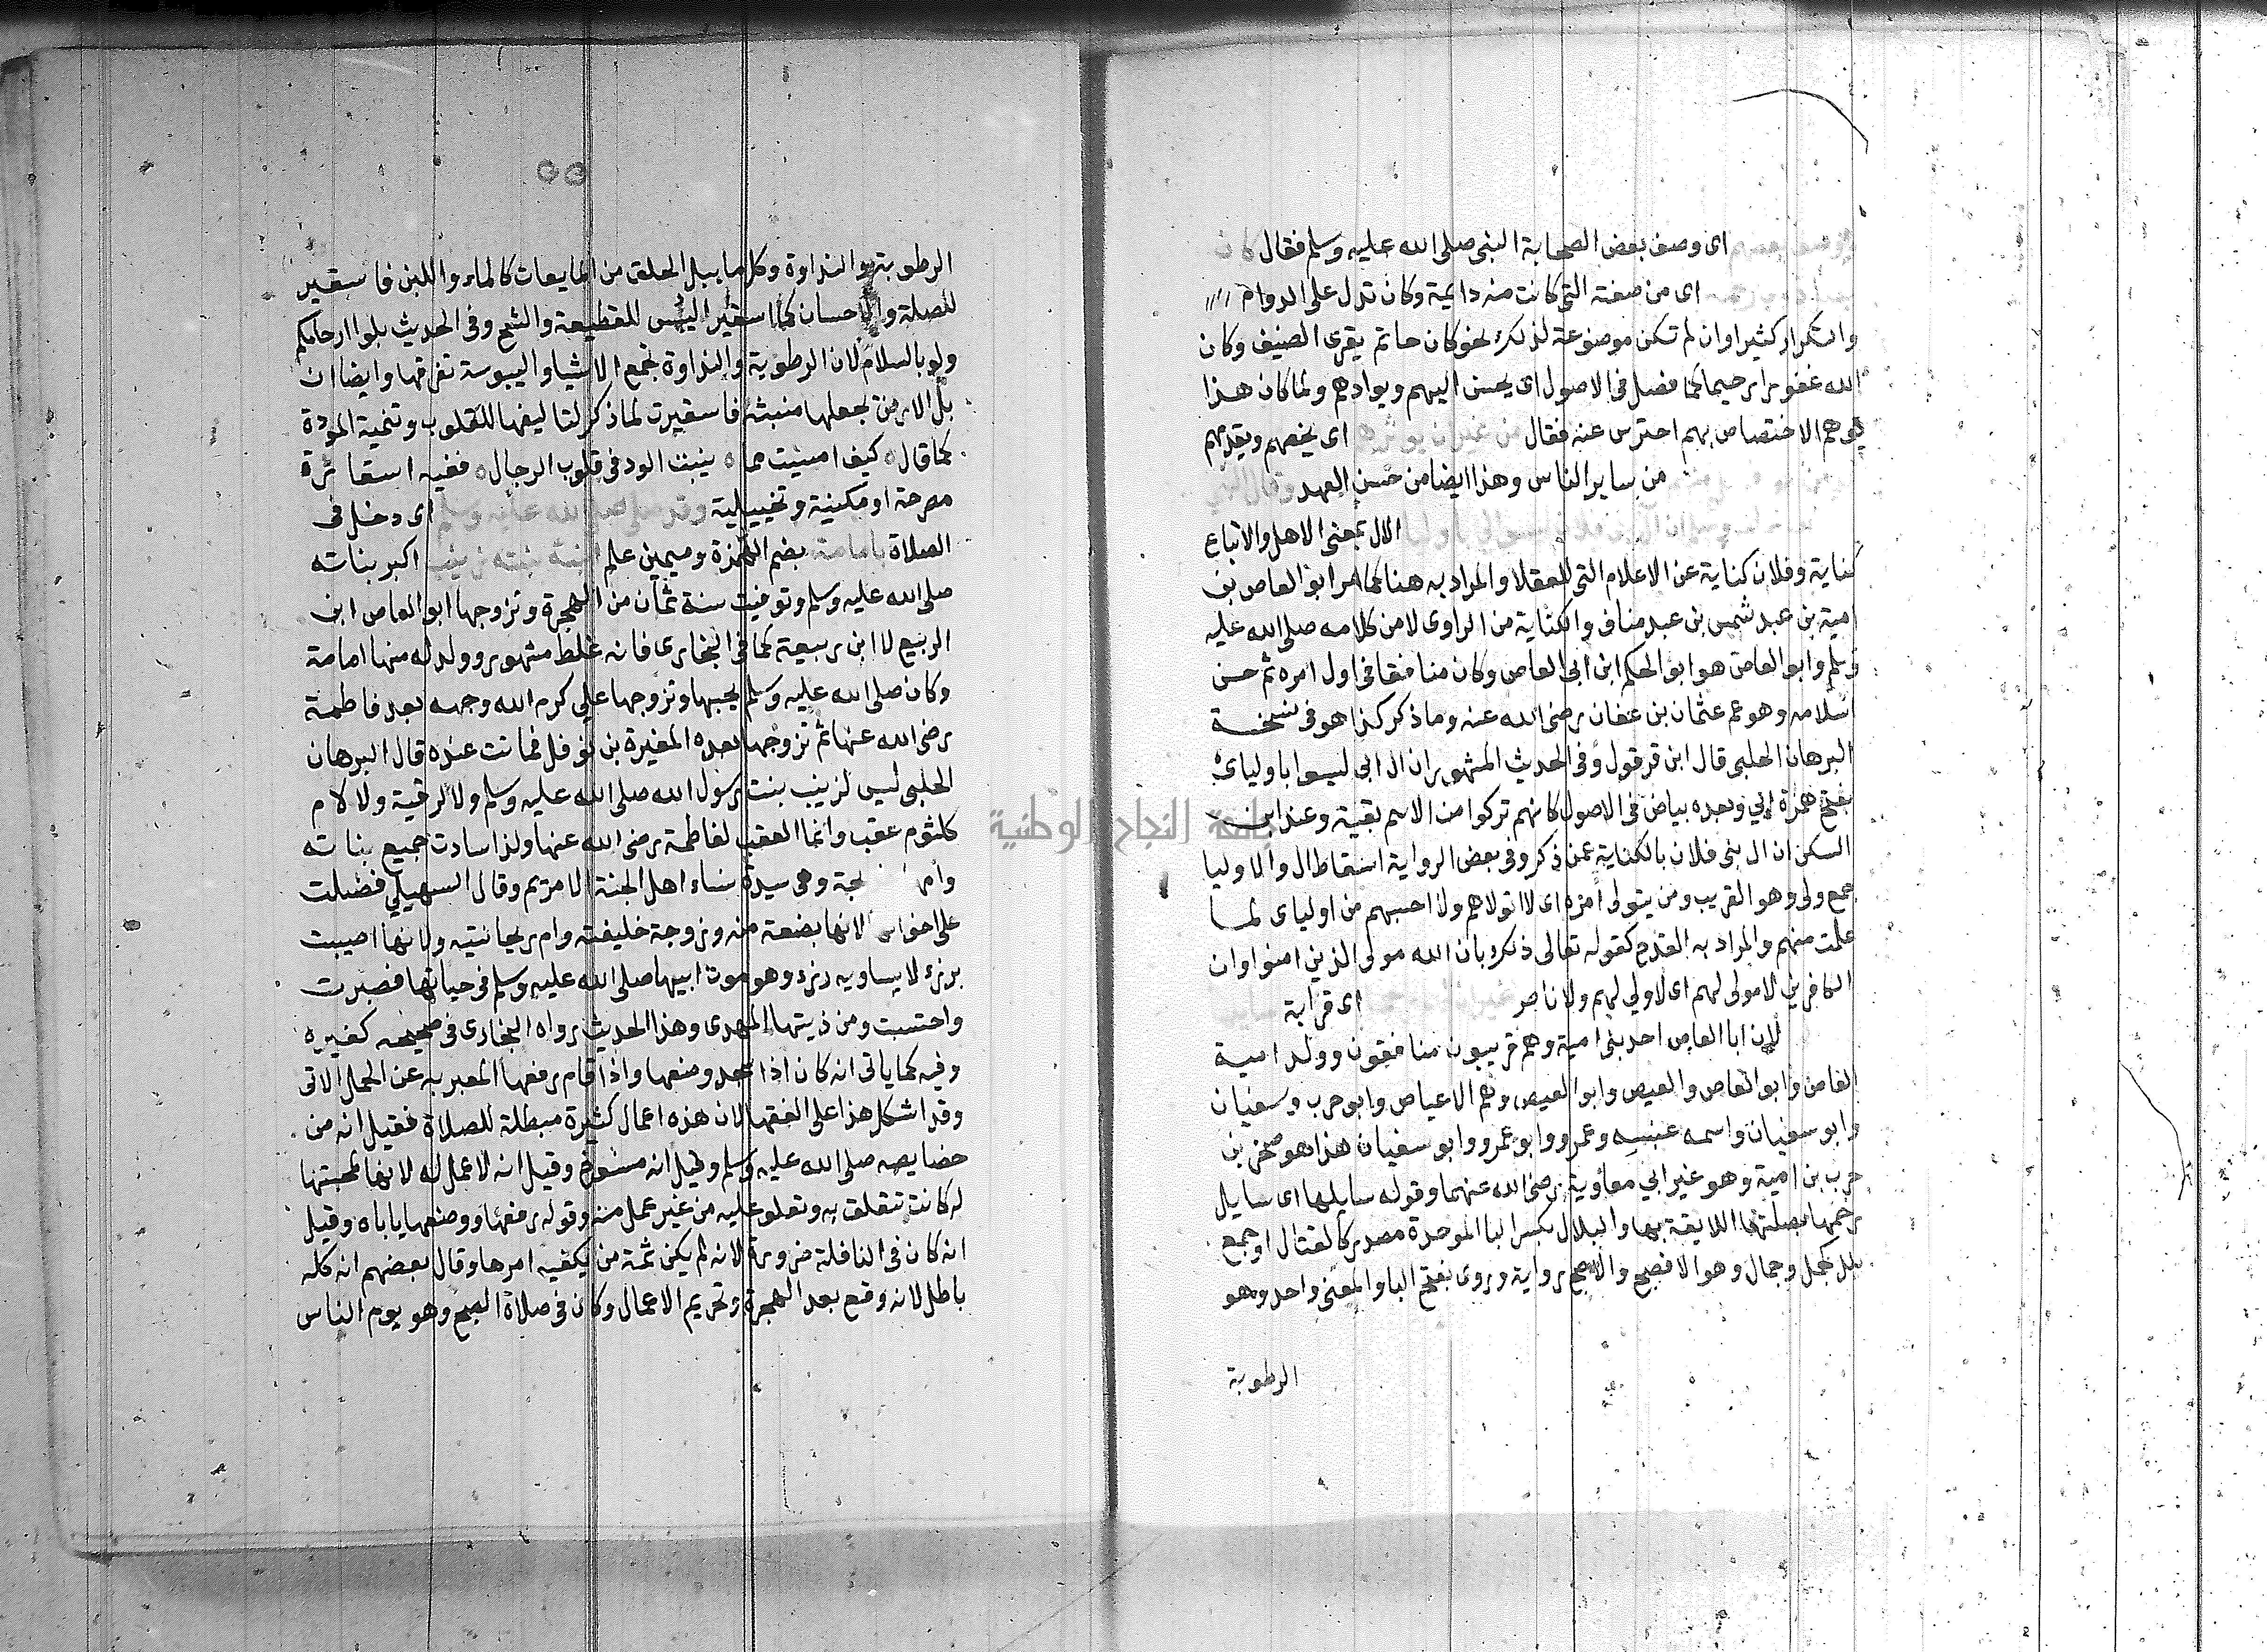 اى وصف بعض الصحابة النبى صلى الله عليه وسلم فقال كان
اى من صفته التى كانت منه دائمية وكان تدل على الدوام
والتكرار كثيرا وان لم تكن موضوعة لذلك نحو كان حاتم يقرى الضيف وكان
الله غفورا رحيما كما فصل فى الاصول اى يحسن اليهم ويوادهم ولما كان هذا
يوهم الاختصاص بهم احترس عنه فقال من غير ان يوثرهم اى يخصهم ويقدمهم
من ساير الناس وهذا ايضا من حسن العهد وقال النبي
الال بمعنى الاهل والاتباع
كناية وفلان كناية عن الاعلام التى للعقلا والمراد به هنا كما مر ابو العاص بن
امية بن عبد شمس بن عبد مناف والكناية من الراوى لا من كلامه صلى الله عليه
وسلم وابو العاص هو ابو الحكم ابن ابى العاص وكان منافقا فى اول امره ثم حسن
اسلامه وهو عم عثمان بن عفان رضى الله عنه وما ذكر كذا هو فى نسخة
البرهان الحلبى قال ابن قرقول وفى الحديث المشهور ان ال ابى ليسوا باوليائى
بفتح همزة ابي وبعده بياض فى الاصول كانهم تركوا من الاسم بقية وعند ابن
السكن ان ال بنى فلان بالكناية عمن ذكر وفى بعض الرواية اسقاط ال والاوليا
جمع ولى وهو القريب ومن يتولى امره اى لا اتولاهم ولا احسبهم من اولياى لما
علمت منهم والمراد به القدح كقوله تعالى ذلك بان الله مولى الذين امنوا وان
الكافرين لا مولى لهم اى لا ولي لهم ولا ناصر اى قرابة
لان ابا العاص احد بنى امية وهم قريبون منافقون وولد امية
العاص وابو العاص والعيص وابو العيص وهم الاعياص وابو حرب وسفيان
وابو سفيان واسمه عنبسه وعمرو وابو عمرو وابو سفيان هذا هو صخر بن
حرب بن امية وهو غير ابي معاوية رضى الله عنهما وقوله سابلها اى سايل
رحمها بصلتها اللايقة بها والبلال بكسر البا الموحدة مصدر كالقتال او جمع
بلل كجمل وجمال وهو الافصح والاصح رواية وروى بفتح البا والمعنى واحد وهو
الرطوبة
الرطوبة والنداوة وكل ما يبل الحلق من المايعات كالماء واللبن فاستعير
للصلة والاحسان كما استعير اليبس للقطيعة والشح وفى الحديث بلوا ارحامكم
ولو بالسلام لان الرطوبة والنداوة تجمع الاشيا واليبوسة تفرقها وايضا ان
بل الارض يجعلها منبتة فاستعيرت لما ذكر لتاليفها للقلوب وتنمية المودة
كما قال كيف امسيت مما ينبت الود فى قلوب الرجال ففيه استعارة
مصرحة او مكنية وتخييلية وقد صلى صلى الله عليه وسلم اى دخل فى
الصلاة بامامة بضم الهمزة وميمين علم ابنة بنته زينب اكبر بناته
صلى الله عليه وسلم وتوفيت سنة ثمان من الهجرة وتزوجها ابو العاص ابن
الربيع لا ابن ربيعة كما فى البخارى فانه غلط مشهور وولد له منها امامة
وكان صلى الله عليه وسلم يحبها وتزوجها علي كرم الله وجهه بعد فاطمة
رضى الله عنها ثم تزوجها بعده المغيرة بن نوفل فماتت عنده قال البرهان
الحلبى ليس لزينب بنت رسول الله صلى الله عليه وسلم ولا لرقية ولا لام
كلثوم عقب وانما العقب لفاطمة رضى الله عنها ولذا سادت جميع بناته
وامها وهى سيدة نساء اهل الجنة الا مريم وقال السهيلي فضلت
على اخواتها لانها بضعة منه وزوجة خليفته وام ريحانتيه ولانها اصيبت
برزء لا يساويه رزء وهو موت ابيها صلى الله عليه وسلم فى حياتها فصبرت
واحتسبت ومن ذريتها المهدى وهذا الحديث رواه البخارى فى صحيحه كغيره
وفيه كما ياتى انه كان اذا سجد وضعها واذا قام رفعها المعبر به عن الحمل الاتى
وقد اشكل هذا على الفقها لان هذه اعمال كثيرة مبطلة للصلاة فقيل انه من
خصايصه صلى الله عليه وسلم وقيل انه منسوخ وقيل انه لا عمل له لانها لمحبتها
له كانت تتعلق به وتعلو عليه من غير عمل منه وقوله رفعها ووضعها ياباه وقيل
انه كان فى النافلة ضرورة لانه لم يكن ثمة من يكفيه امرها وقال بعضهم انه كله
باطل لانه وقع بعد الهجرة وتحريم الاعمال وكان فى صلاة الصبح وهو يوم الناس
جامعة النجاح الوطنية